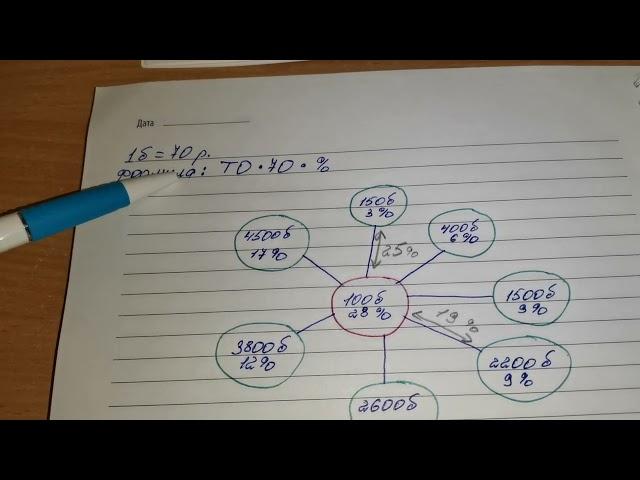 Дата
1б = 70 р.
формула: ТО · 70 · %
150б
3%
4500б
17%
400б
6%
25%
100б
28%
1500б
9%
19%
3800б
12%
2200б
9%
2600б